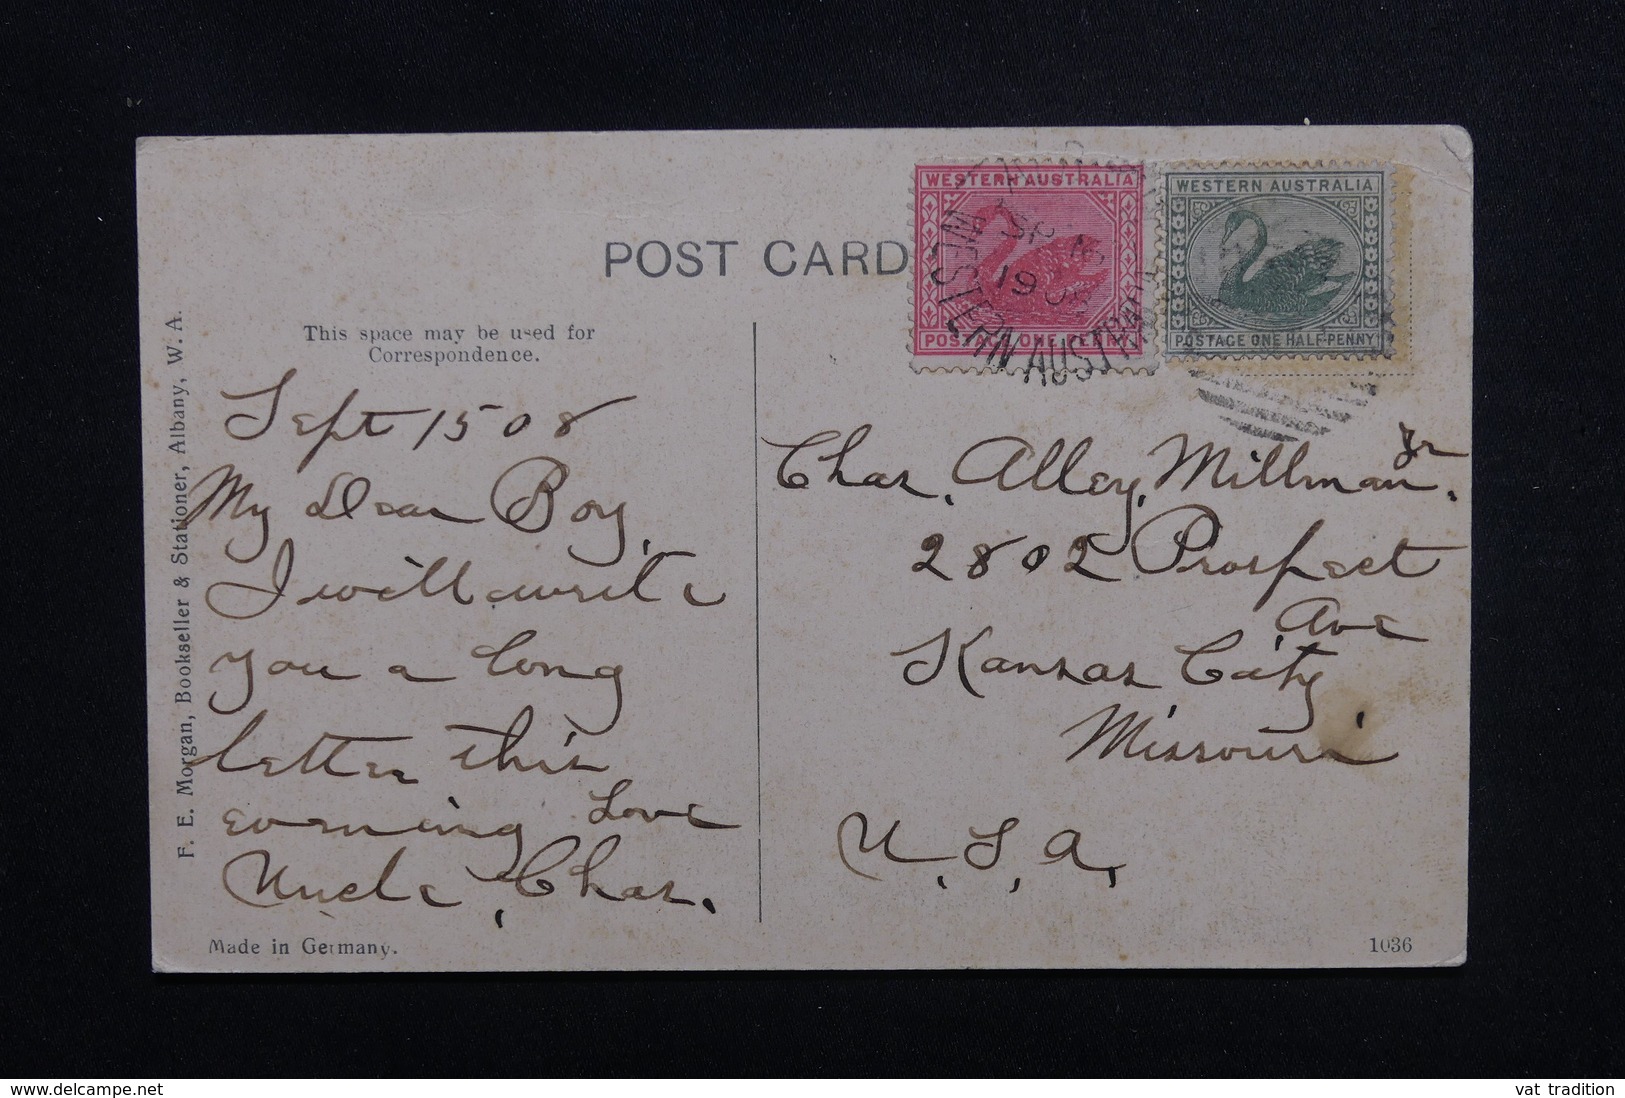 POST CARD
This space may be used for
Correspondence.
F. E. Morgan, Bookseller & Stationer, Albany, W. A.
Sept 15 08
My Dear Boy,
I will write
you a long
letter this
evening Love
Uncle, Chas.
Made in Germany.
WESTERN AUSTRALIA
POSTAGE ONE PENNY
WESTERN AUSTRALIA
POSTAGE ONE HALF-PENNY
SP 16
1908
WESTERN AUSTRALIA
Chas. Alley, Millman Jr.
2802 Prospect
Ave
Kansas City,
Missouri
U.S.A.
1036
www.delcampe.net
vat tradition